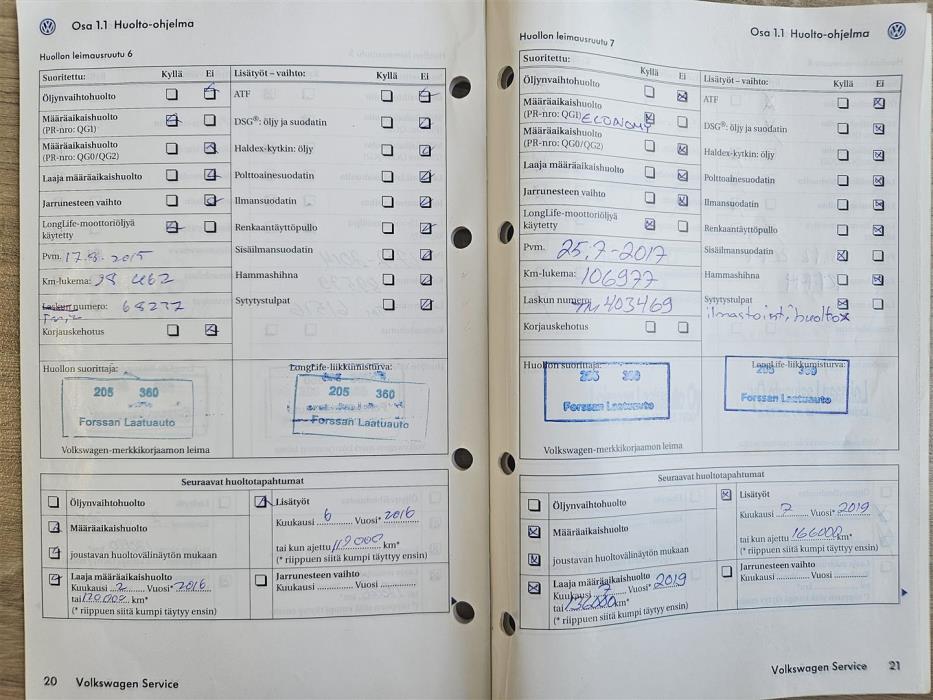 Osa 1.1 Huolto-ohjelma
Huollon leimausruutu 6
Suoritettu: Kyllä Ei Lisätyöt – vaihto: Kyllä Ei
Öljynvaihtohuolto ATF
Määräaikaishuolto
(PR-nro: QG1) DSG®: öljy ja suodatin
Määräaikaishuolto
(PR-nro: QG0/QG2) Haldex-kytkin: öljy
Laaja määräaikaishuolto Polttoainesuodatin
Jarrunesteen vaihto Ilmansuodatin
LongLife-moottoriöljyä
käytetty Renkaantäyttöpullo
Pvm. 17.8. 2015 Sisäilmansuodatin
Km-lukema: 98 462 Hammashihna
Laskun numero: 68277 Sytytystulpat
Korjauskehotus
Huollon suorittaja: LongLife-liikkumisturva:
205 360 205 360
Forssan Laatuauto Forssan Laatuauto
Volkswagen-merkkikorjaamon leima
Seuraavat huoltotapahtumat
Öljynvaihtohuolto Lisätyöt
Määräaikaishuolto Kuukausi 6 Vuosi* 2016
joustavan huoltovälinäytön mukaan tai kun ajettu 119000 km*
(* riippuen siitä kumpi täyttyy ensin)
Laaja määräaikaishuolto Jarrunesteen vaihto
Kuukausi 2 Vuosi* 2016 Kuukausi Vuosi
tai 120000 km*
(* riippuen siitä kumpi täyttyy ensin)
20 Volkswagen Service
Osa 1.1 Huolto-ohjelma
Huollon leimausruutu 7
Suoritettu: Kyllä Ei Lisätyöt – vaihto: Kyllä Ei
Öljynvaihtohuolto ATF
Määräaikaishuolto
(PR-nro: QG1) ECONOMY DSG®: öljy ja suodatin
Määräaikaishuolto
(PR-nro: QG0/QG2) Haldex-kytkin: öljy
Laaja määräaikaishuolto Polttoainesuodatin
Jarrunesteen vaihto Ilmansuodatin
LongLife-moottoriöljyä
käytetty Renkaantäyttöpullo
Pvm. 25.7-2017 Sisäilmansuodatin
Km-lukema: 106977 Hammashihna
Laskun numero: TM403469 Sytytystulpat
ilmastointihuolto x
Korjauskehotus
Huollon suorittaja: LongLife-liikkumisturva:
205 360 205 360
Forssan Laatuauto Forssan Laatuauto
Volkswagen-merkkikorjaamon leima
Seuraavat huoltotapahtumat
Öljynvaihtohuolto Lisätyöt
Määräaikaishuolto Kuukausi 7 Vuosi* 2019
joustavan huoltovälinäytön mukaan tai kun ajettu 166000 km*
(* riippuen siitä kumpi täyttyy ensin)
Laaja määräaikaishuolto Jarrunesteen vaihto
Kuukausi 7 Vuosi* 2019 Kuukausi Vuosi
tai 136000 km*
(* riippuen siitä kumpi täyttyy ensin)
Volkswagen Service 21